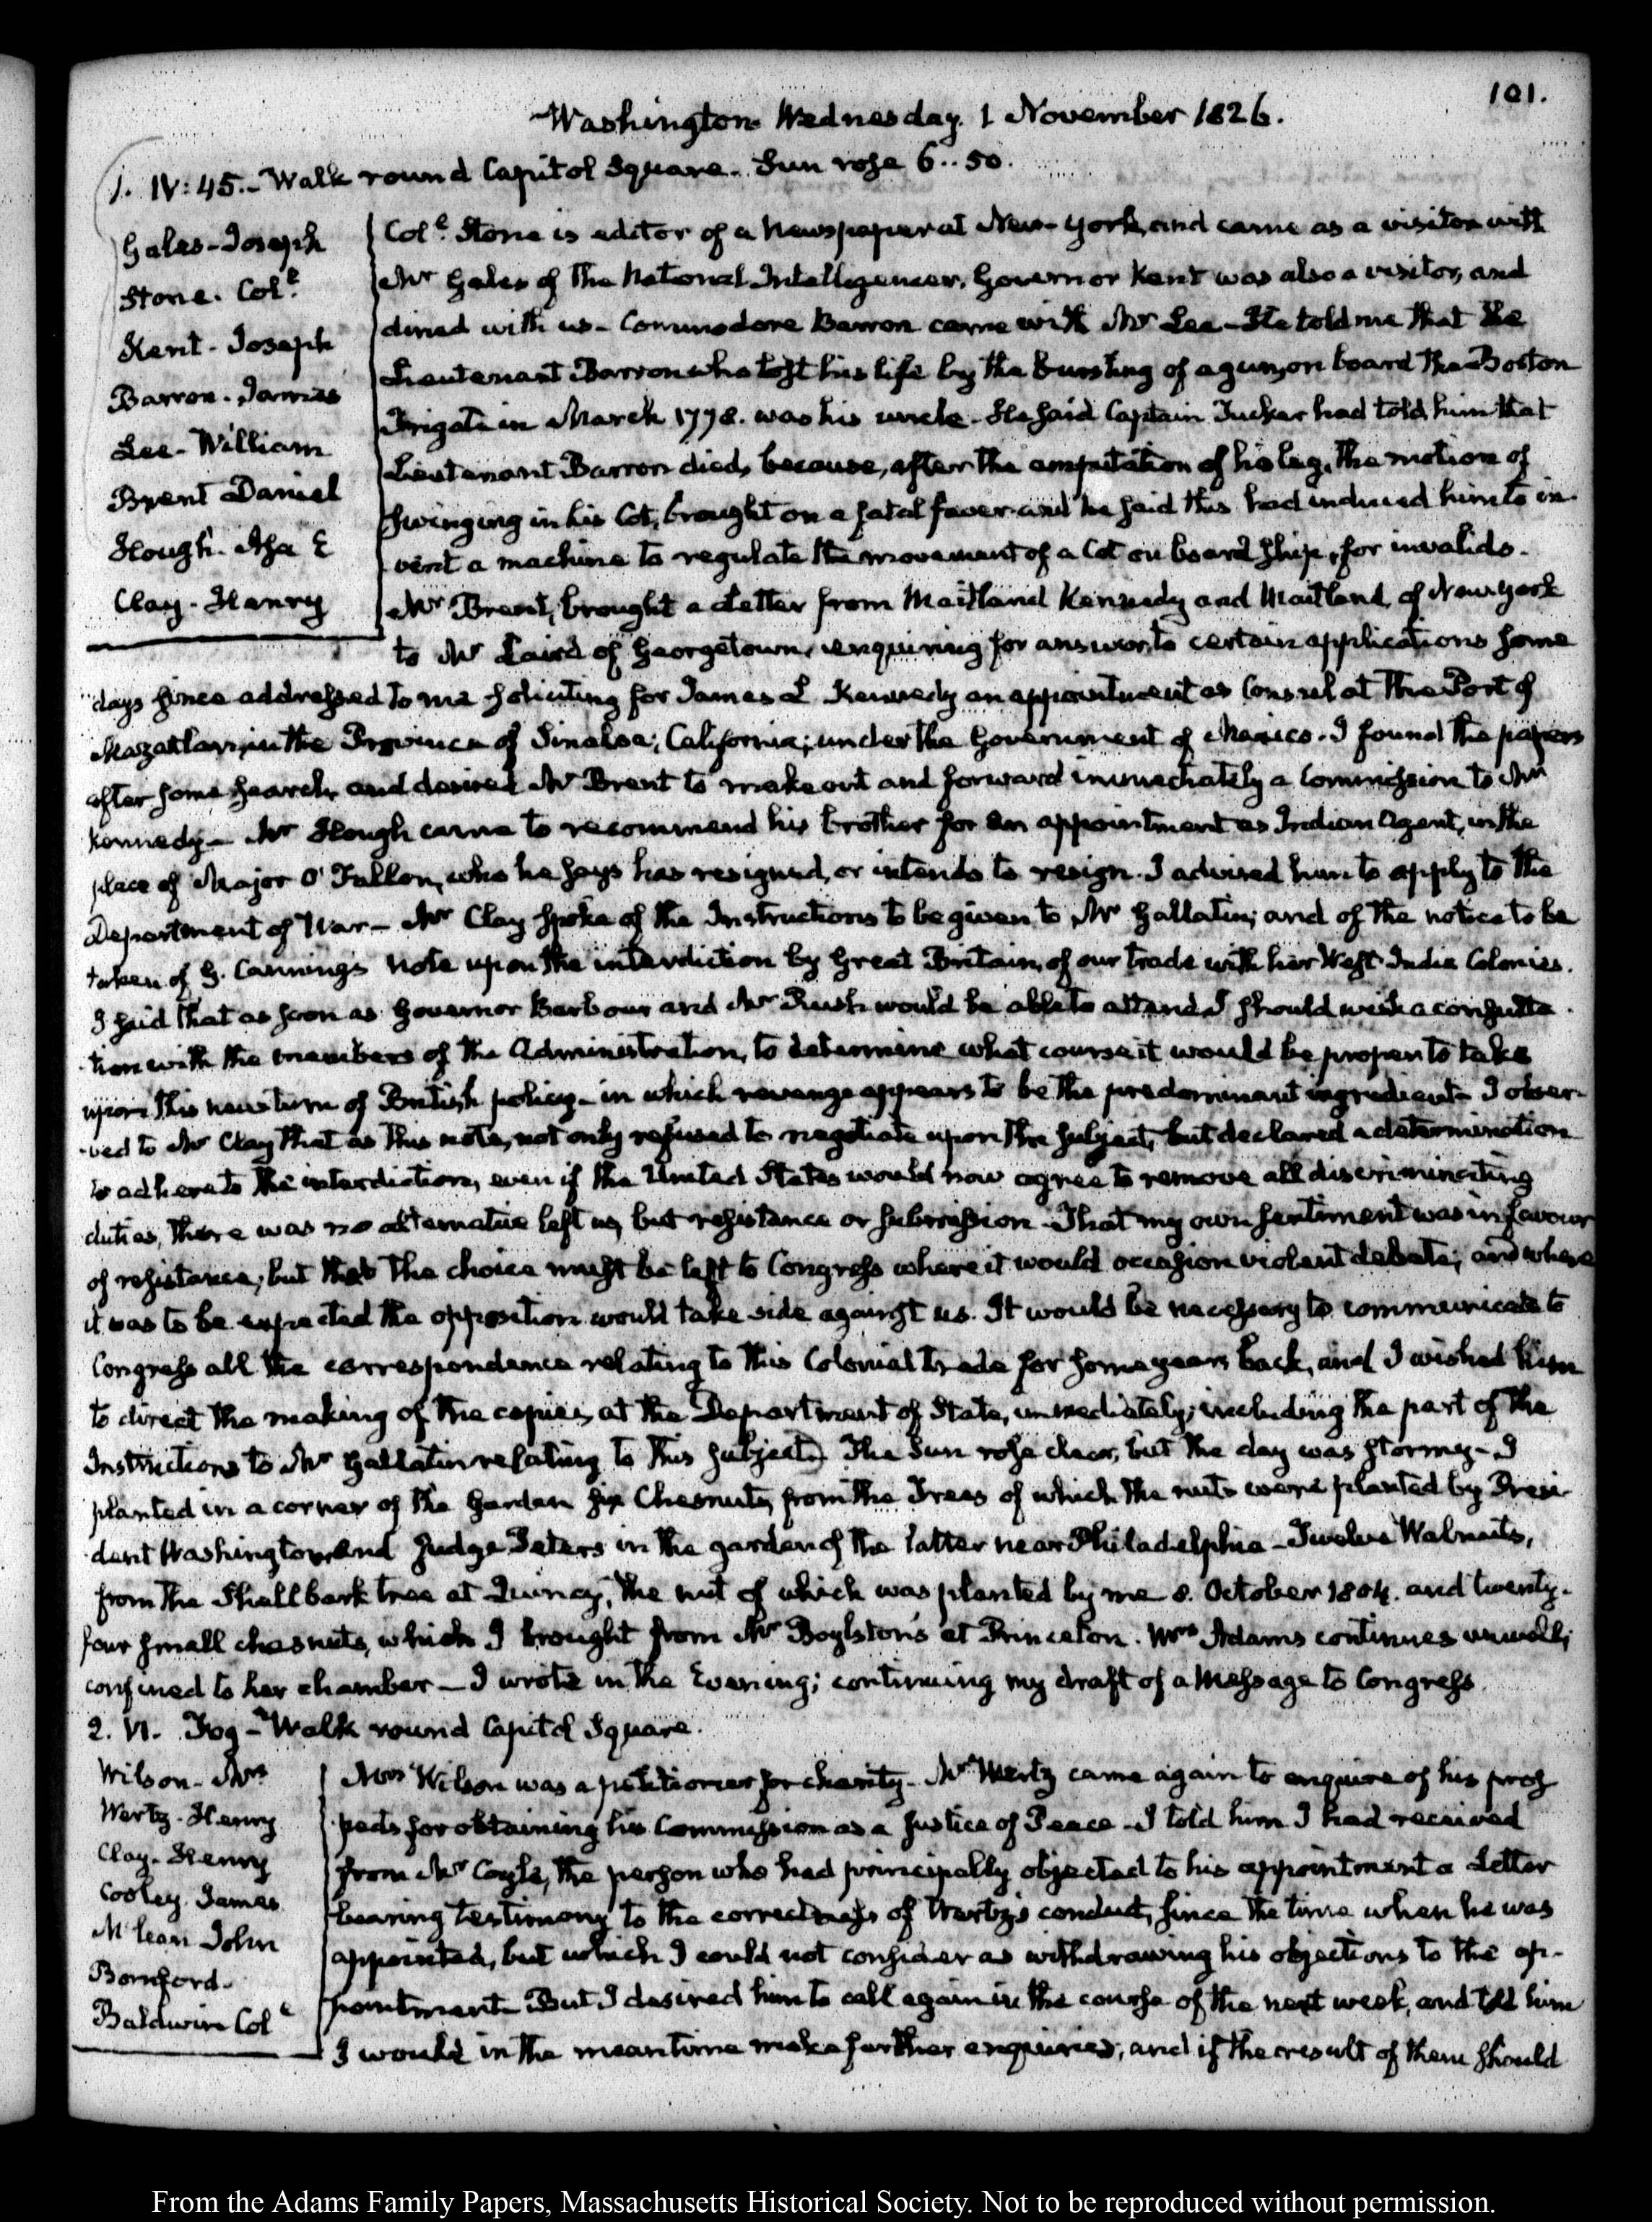 101.
Washington Wednesday. 1 November 1826.
1. IV: 45.- Walk round Capitol Square. Sun rose 6..50.
Gales- Joseph
Stone. Col.l
Kent- Joseph
Barron. James
Lee- William
Brent Daniel
Hough- Asa E
Clay- Henry
Col.l Stone is editor of a Newspaper at New-York, and came as a visitor with
Mr Gales of the National Intelligencer. Governor Kent was also a visitor, and
dined with us- Commodore Barron came with Mr Lee- He told me that the
Lieutenant Barron who lost his life by the bursting of a gun, on board the Boston
Frigate in March 1778. was his uncle- He said Captain Tucker had told him that
Lieutenant Barron died, because, after the amputation of his leg, the motion of
swinging in his Cot, brought on a fatal fever and he said this had induced him to in-
vent a machine to regulate the movement of a Cot on board ship, for invalids.
Mr Brent, brought a Letter from Maitland Kennedy and Maitland of New York
to Mr Laird of Georgetown, enquiring for answer, to certain applications some
days since addressed to me soliciting for James L Kennedy an appointment as Consul at the Port of
Mazatlan, in the Province of Sinaloa, California; under the Government of Mexico. I found the papers
after some search, and desired Mr Brent to make out and forward immediately a Commission to Mr
Kennedy- Mr Hough came to recommend his brother for an appointment as Indian Agent, in the
place of Major O'Fallon, who he says has resigned, or intends to resign. I advised him to apply to the
Department of War- Mr Clay spoke of the Instructions to be given to Mr Gallatin; and of the notice to be
taken of G. Cannings note upon the interdiction by Great Britain, of our trade with her West-India Colonies.
I said that as soon as Governor Barbour and Mr Rush would be able to attend I should wish a consulta-
tion with the members of the Administration, to determine what course it would be proper to take
upon this new turn of British policy- in which revenge appears to be the predominant ingredient- I obser-
ved to Mr Clay that as this note, not only refused to negotiate upon the subject, but declared a determination
to adhere to the interdiction, even if the United States would now agree to remove all discriminating
duties, there was no alternative left us, but resistance or submission- That my own sentiment was in favour
of resistance; but that the choice must be left to Congress where it would occasion violent debate; and where
it was to be expected the opposition would take side against us. It would be necessary to communicate to
Congress all the correspondence relating to this Colonial Trade for some years back, and I wished him
to direct the making of the copies, at the Department of State, immediately; including the part of the
Instructions to Mr Gallatin relating to this subject. The Sun rose clear, but the day was stormy- I
planted in a corner of the Garden six Chesnuts, from the Trees of which the nuts were planted by Presi-
dent Washington and Judge Peters in the garden of the latter near Philadelphia- Twelve Walnuts,
from the Shallbark tree at Quincy, the nut of which was planted by me 8. October 1804. and twenty-
four small chesnuts, which I brought from Mr Boylston's at Princeton. Mrs Adams continues unwell;
confined to her chamber- I wrote in the Evening; continuing my draft of a Message to Congress.
2. VI. Fog- Walk round Capitol Square.
Wilson- Mrs
Wertz- Henry
Clay- Henry
Cooley. James
McLean John
Bomford.
Baldwin Col.l
Mrs Wilson was a petitioner for charity- Mr Wertz came again to enquire of his pros-
pects for obtaining his Commission as a Justice of Peace- I told him I had received
from Mr Coyle, the person who had principally objected to his appointment a Letter
bearing testimony to the correctness of Wertz's conduct, since the time when he was
appointed, but which I could not consider as withdrawing his objections to the ap-
pointment- But I desired him to call again in the course of the next week, and told him
I would in the meantime make further enquiries, and if the result of them should
From the Adams Family Papers, Massachusetts Historical Society. Not to be reproduced without permission.